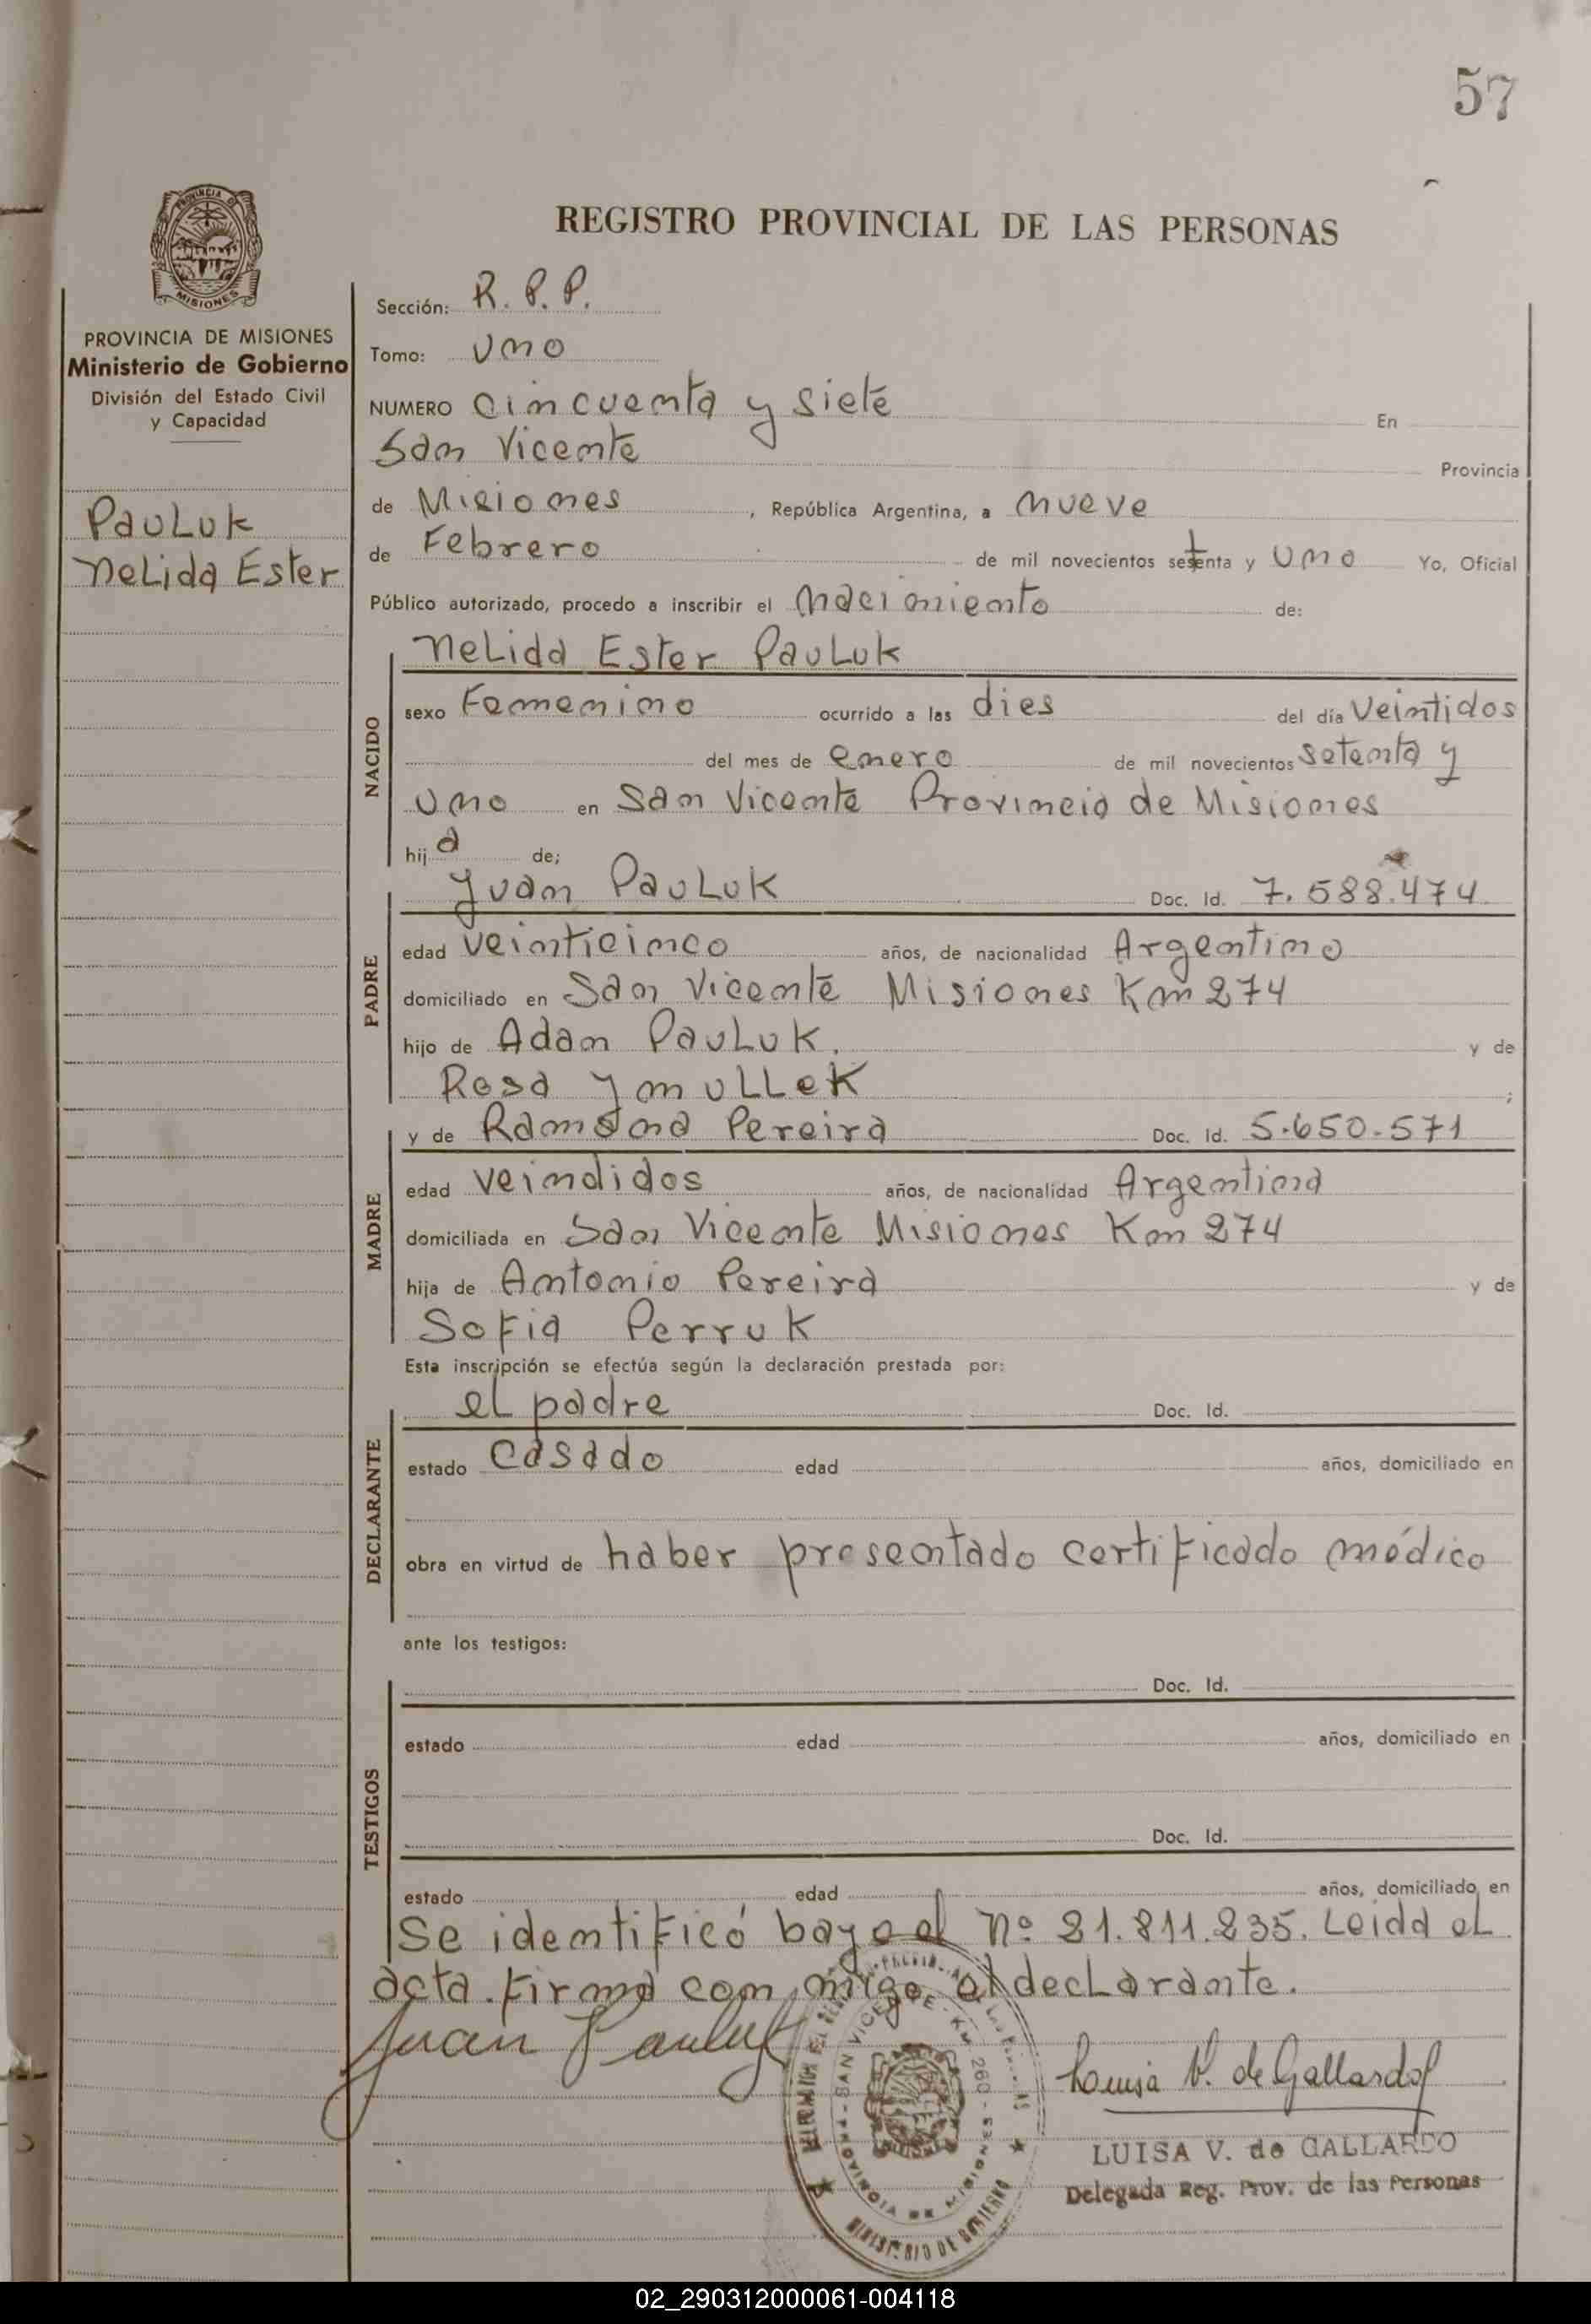 57
REGISTRO PROVINCIAL DE LAS PERSONAS
PROVINCIA DE MISIONES
Ministerio de Gobierno
División del Estado Civil
y Capacidad
PauLuk
NeLida Ester
Sección: R. P. P.
Tomo: Uno
NUMERO Cincuenta y siete En
San Vicente Provincia
de Misiones, República Argentina, a nueve
de Febrero de mil novecientos setenta y uno Yo, Oficial
Público autorizado, procedo a inscribir el nacimiento de:
NACIDO
NeLida Ester PauLuk
sexo Femenino ocurrido a las dies del día Veintidos
del mes de enero de mil novecientos setenta y
uno en San Vicente Provincia de Misiones
hija de;
PADRE
Juan PauLuk Doc. Id. 7.588.474
edad veinticinco años, de nacionalidad Argentino
domiciliado en San Vicente Misiones Km 274
hijo de Adan PauLuk. y de
Rosa YmuLLek;
MADRE
y de Ramona Pereira Doc. Id. 5.650.571
edad veindidos años, de nacionalidad Argentina
domiciliada en San Vicente Misiones Km 274
hija de Antonio Pereira y de
Sofia Perruk
Esta inscripción se efectúa según la declaración prestada por:
DECLARANTE
eL padre Doc. Id.
estado Casado edad años, domiciliado en
obra en virtud de haber presentado certificado médico
ante los testigos:
TESTIGOS
Doc. Id.
estado edad años, domiciliado en
Doc. Id.
estado edad años, domiciliado en
Se identificó bayo el Nº 21.811.235. Leida eL
acta. firma conmigo el declarante.
Juan Pauluk
SAN VICENTE - KM 260 - PROVINCIA DE MISIONES
MINISTERIO DE GOBIERNO
Luisa V. de Gallardo
LUISA V. de GALLARDO
Delegada Reg. Prov. de las Personas
02_290312000061-004118